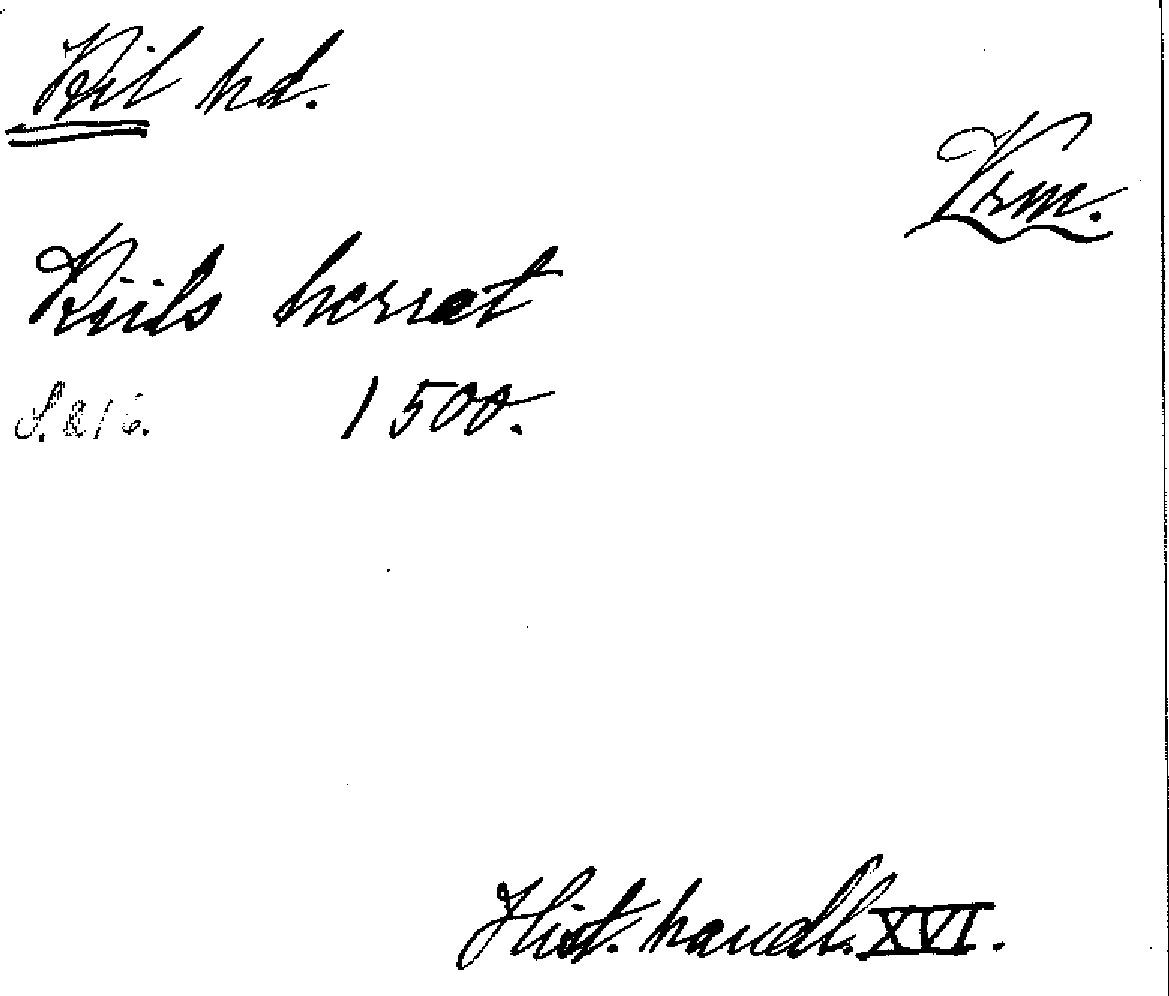 Kil hd.
Vrm.
Kiils herrat
S. 216. 1500.
Hist. handl. XVI.